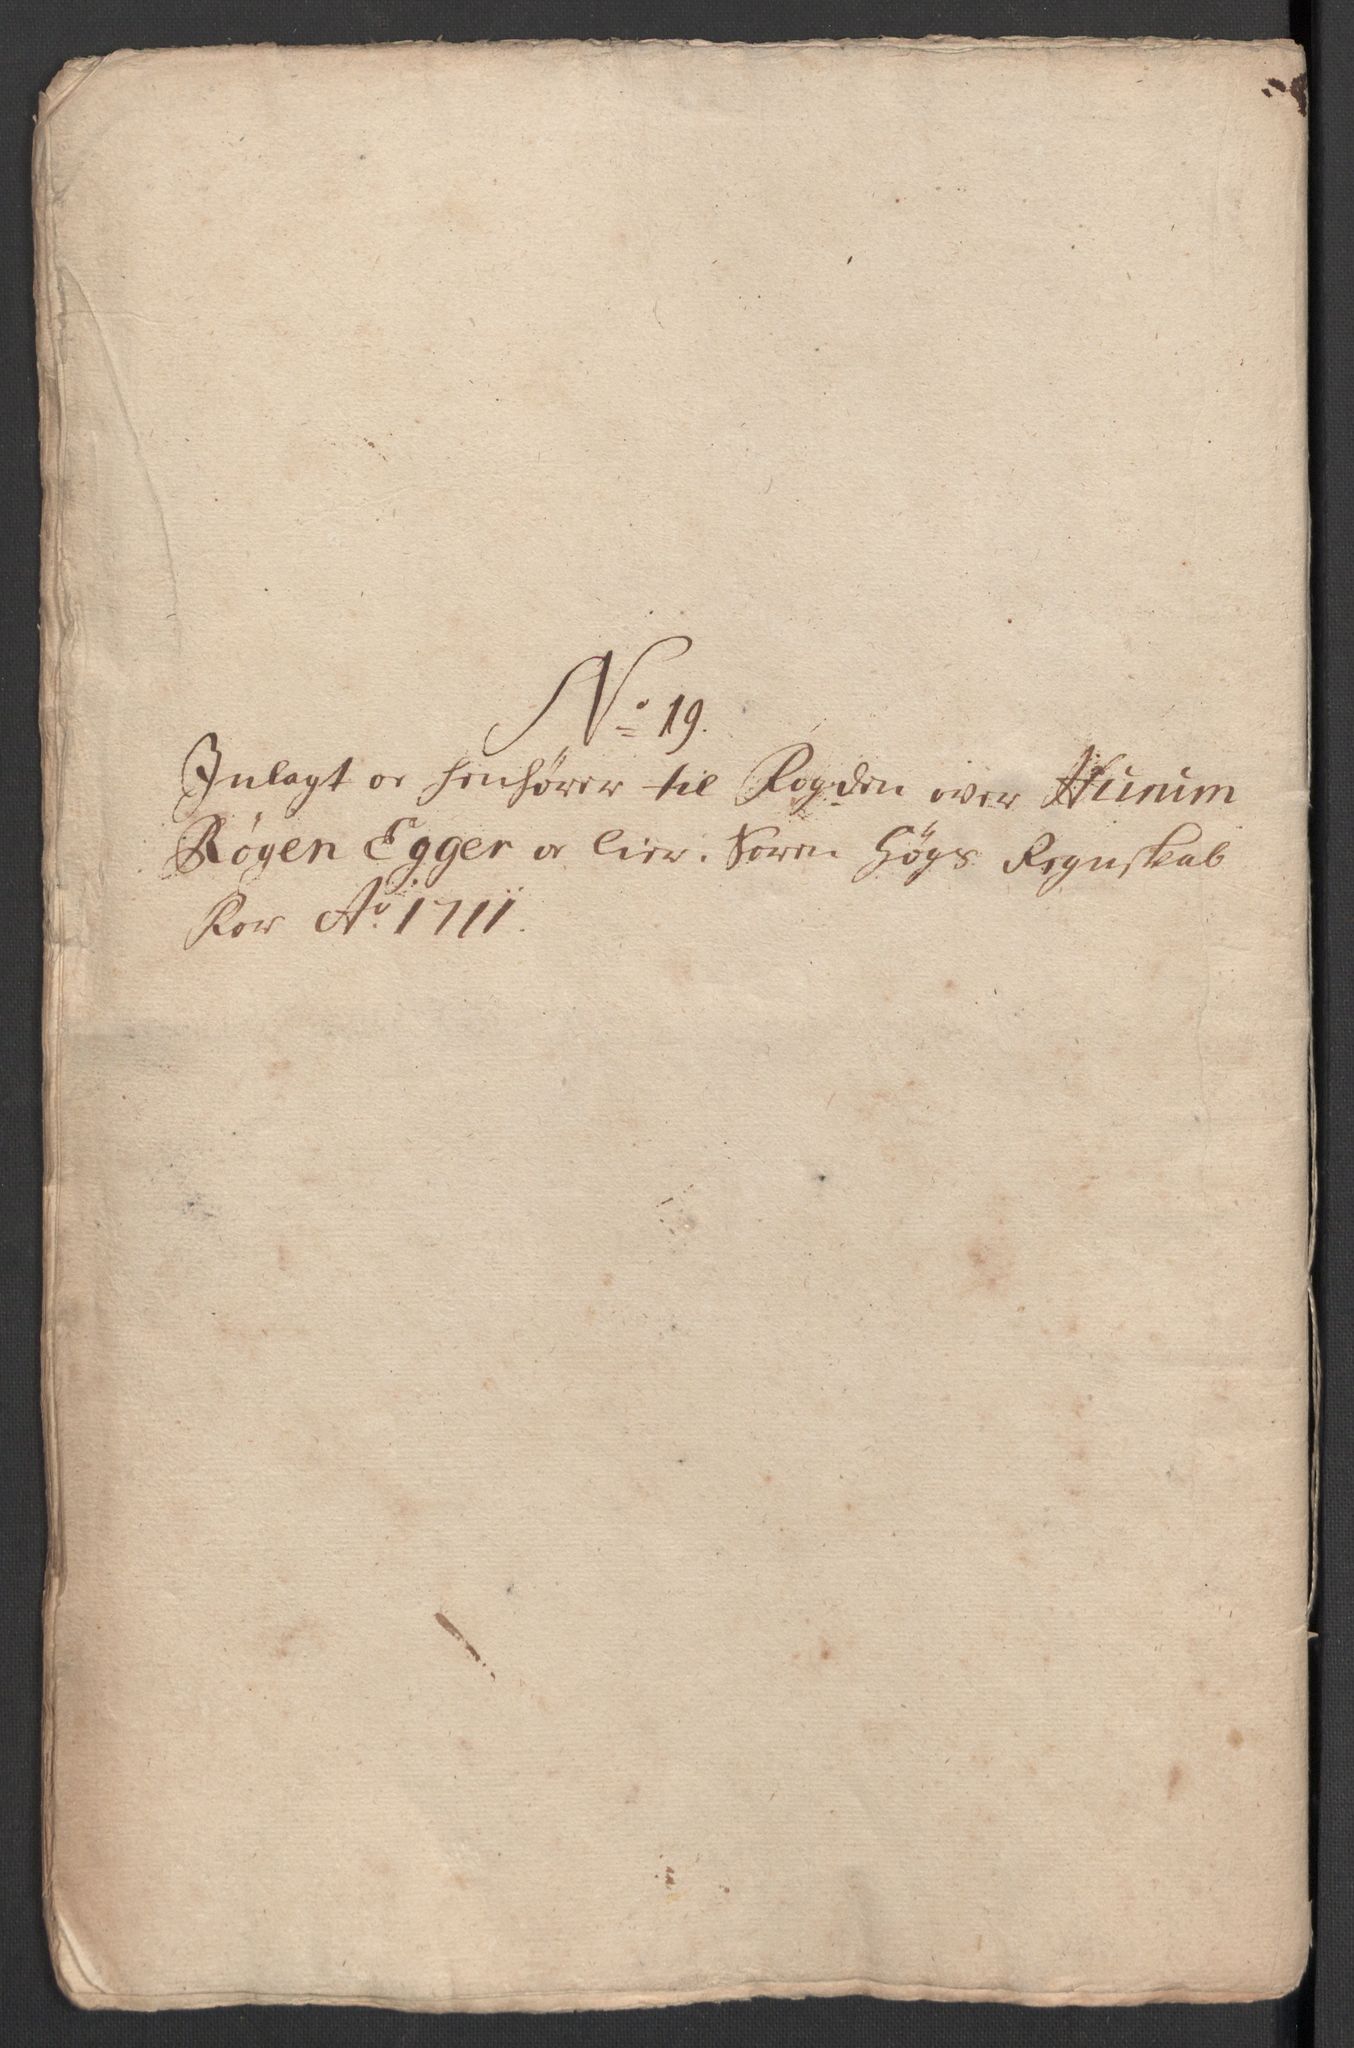 No 19.
Inlagt oc henhører til Fogden over Hurum
Røgen Egger oc lier. Søren Høgs Regnskab
For Ao. 1711.